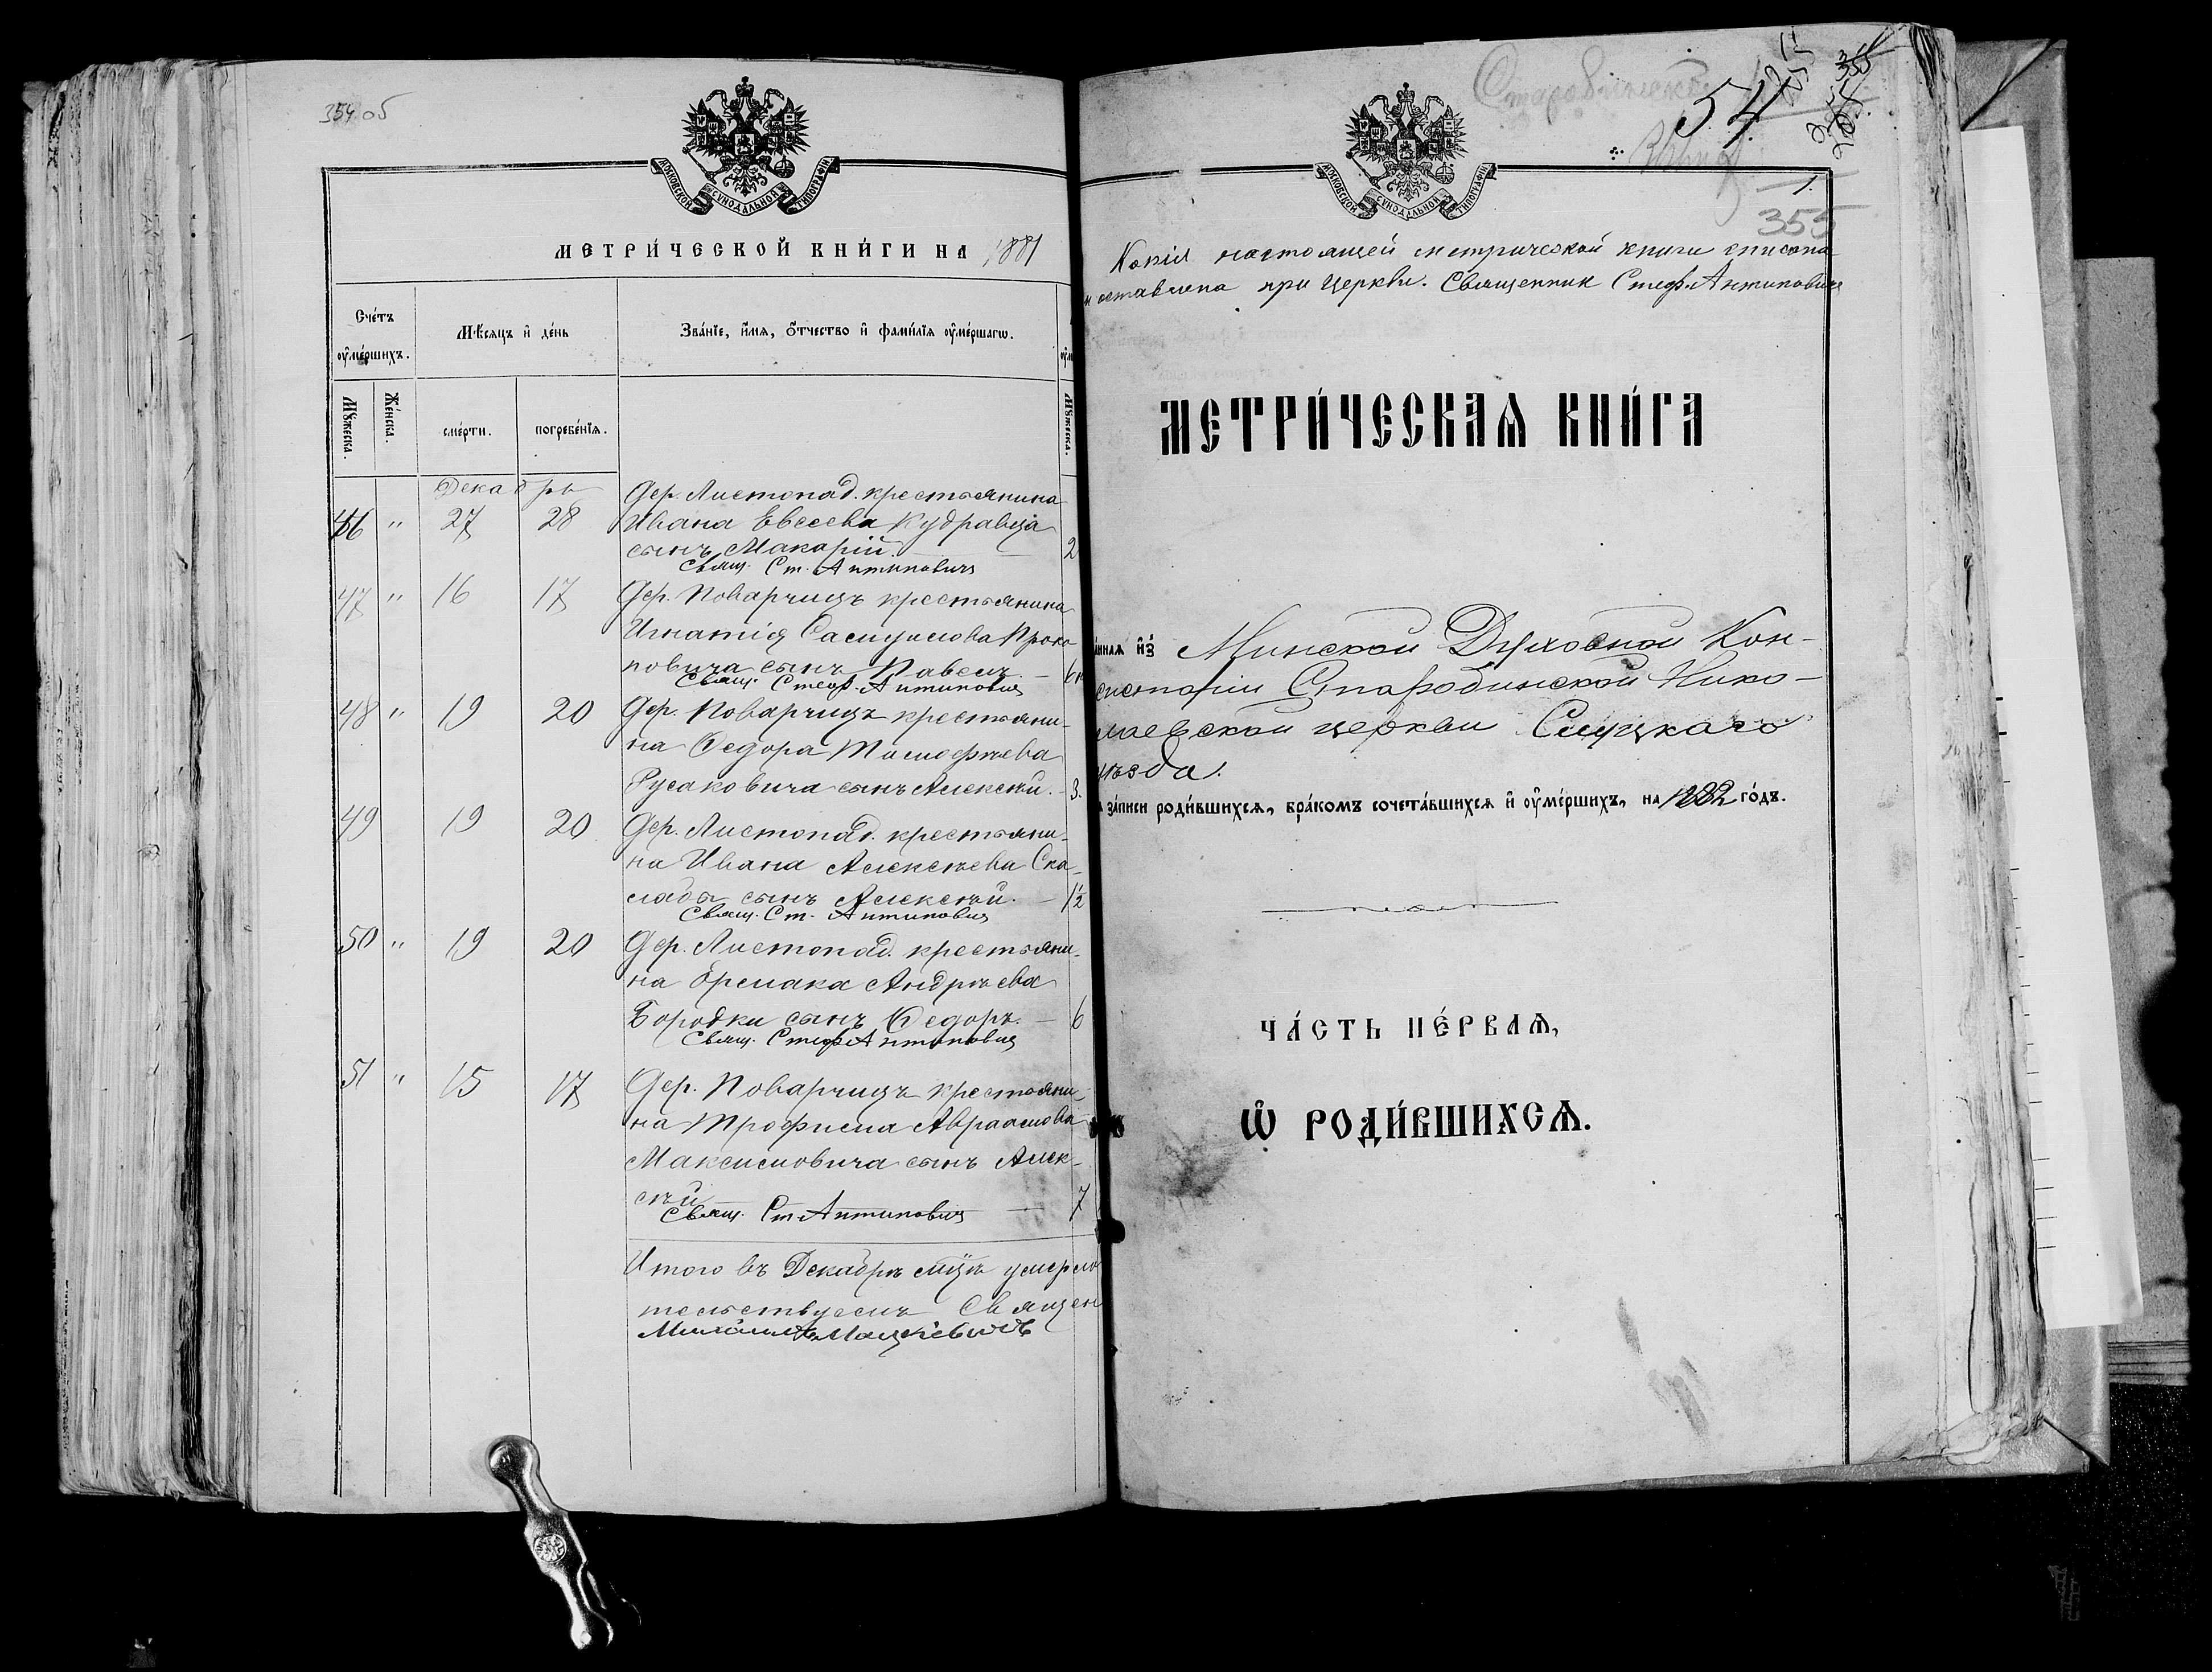 354 об
МОСКОВСКОЙ СѴНОДАЛЬНОЙ ТИПОГРАФІИ
МЕТРИ́ЧЕСКОЙ КНИ́ГИ НА 1881
Сче́тъ
оу҆ме́ршихъ.
Мѣ́сяцъ и҆ де́нь
Зва́нїе, и҆́мя, ѻ҆́тчество и҆ фами́лїя оу҆ме́ршагѡ.
Мꙋ́жеска.
Же́нска.
сме́рти.
погребе́нїя.
Мꙋ́жеска.
Декабрь
46 " 27 28 Дер. Листопад. крестьянина
Ивана Евсеева Кудравца
сынъ Макарій. 2
Свящ. Ст. Антиповичъ
47 " 16 17 Дер. Поварчицъ крестьянина
Игнатія Самуилова Проко
повича сынъ Павелъ —
Свящ. Стеф. Антиповичъ
48 " 19 20 Дер. Поварчицъ крестьяни-
на Ѳедора Тимоѳеева
Русаковича сынъ Алексѣй. — 3.
49 19 20 Дер. Листопад. крестьяни-
на Ивана Алексѣева Ска-
лабы сынъ Алексѣй. — 1½
Свящ. Ст. Антиповичъ
50 " 19 20 Дер. Листопад. крестьяни-
на Ермака Андрѣева
Бородки сынъ Ѳедоръ. — 6
Свящ. Стеф. Антиповичъ
51 " 15 17 Дер. Поварчицъ крестьяни-
на Трофима Авраамова
Максимовича сынъ Алек-
сѣй — 7
Свящ. Ст. Антиповичъ
Итого въ Декабрѣ мцѣ умерло
тельствуемъ Священ
Мацкевичъ
54
355
МОСКОВСКОЙ СѴНОДАЛЬНОЙ ТИПОГРАФІИ
1.
355
Копія настоящей метрической книги списана
и оставлена при церкви. Священник Стеф. Антиповичъ
МЕТРИ́ЧЕСКАЯ КНИ́ГА
а́нная и҆з̾ Минской Духовной Кон-
систоріи Старобинской Нико-
лаевской церкви Слуцкаго
уѣзда.
за́писи роди́вшихся, бра́комъ сочета́вшихся и҆ оу҆ме́ршихъ, на 1882 го́дъ.
ЧА́СТЬ ПЕ́РВАЯ,
Ѡ҆ РОДИ́ВШИХСЯ.